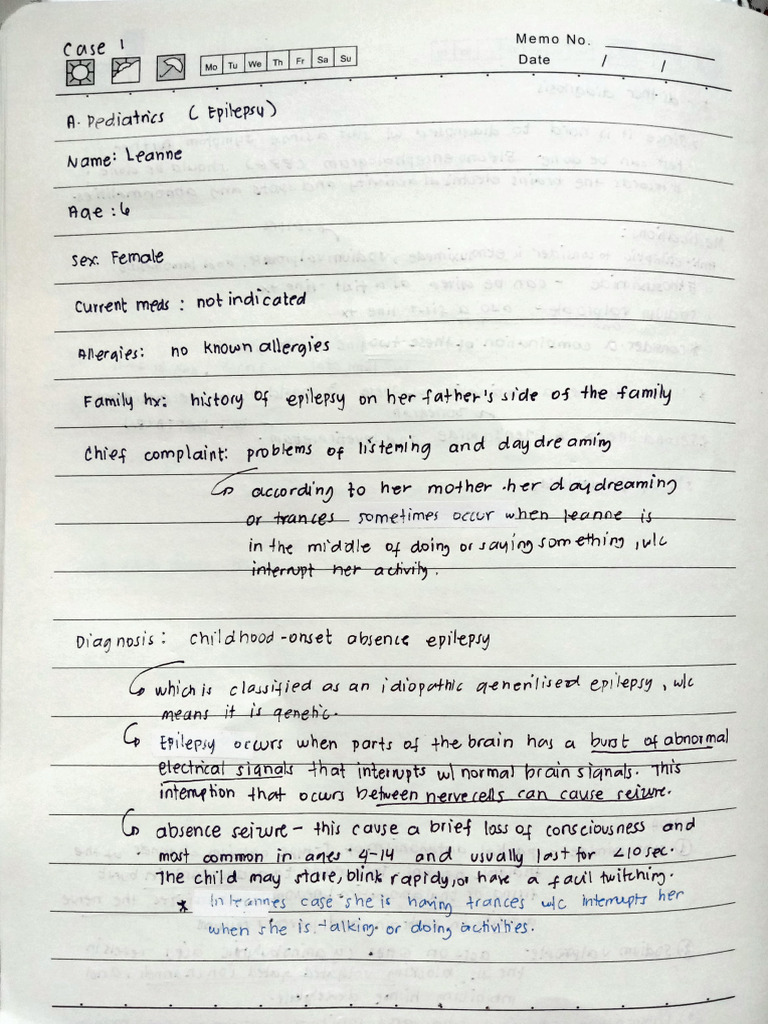 Case 1
Mo Tu We Th Fr Sa Su
Memo No.
Date / /
A. Pediatrics (Epilepsy)
Name: Leanne
Age : 6
Sex: Female
Current meds : not indicated
Allergies: no known allergies
Family hx: history of epilepsy on her father's side of the family
Chief complaint: problems of listening and daydreaming
according to her mother her daydreaming
or trances sometimes occur when leanne is
in the middle of doing or saying something, w/c
interrupt her activity.
Diagnosis : childhood-onset absence epilepsy
which is classified as an idiopathic generilised epilepsy, w/c
means it is genetic.
Epilepsy occurs when parts of the brain has a burst of abnormal
electrical signals that interrupts w/ normal brain signals. This
interruption that occurs between nerve cells can cause seizure.
absence seizure - this cause a brief loss of consciousness and
most common in ages 4-14 and usually last for <10 sec.
The child may stare, blink rapidy, or have a facil twitching.
* In leannes case she is having trances w/c interrupts her
when she is talking or doing activities.